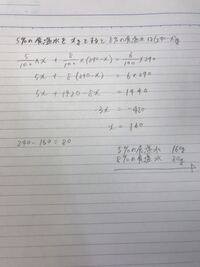 5%の食塩水を xgとすると 8%の食塩水は(240-x)g
5/100 × x + 8/100 × (240-x) = 6/100 × 240
5x + 8(240-x) = 6×240
5x + 1920 - 8x = 1440
-3x = -480
x = 160
240-160=80
5%の食塩水 160g
8%の食塩水 80g